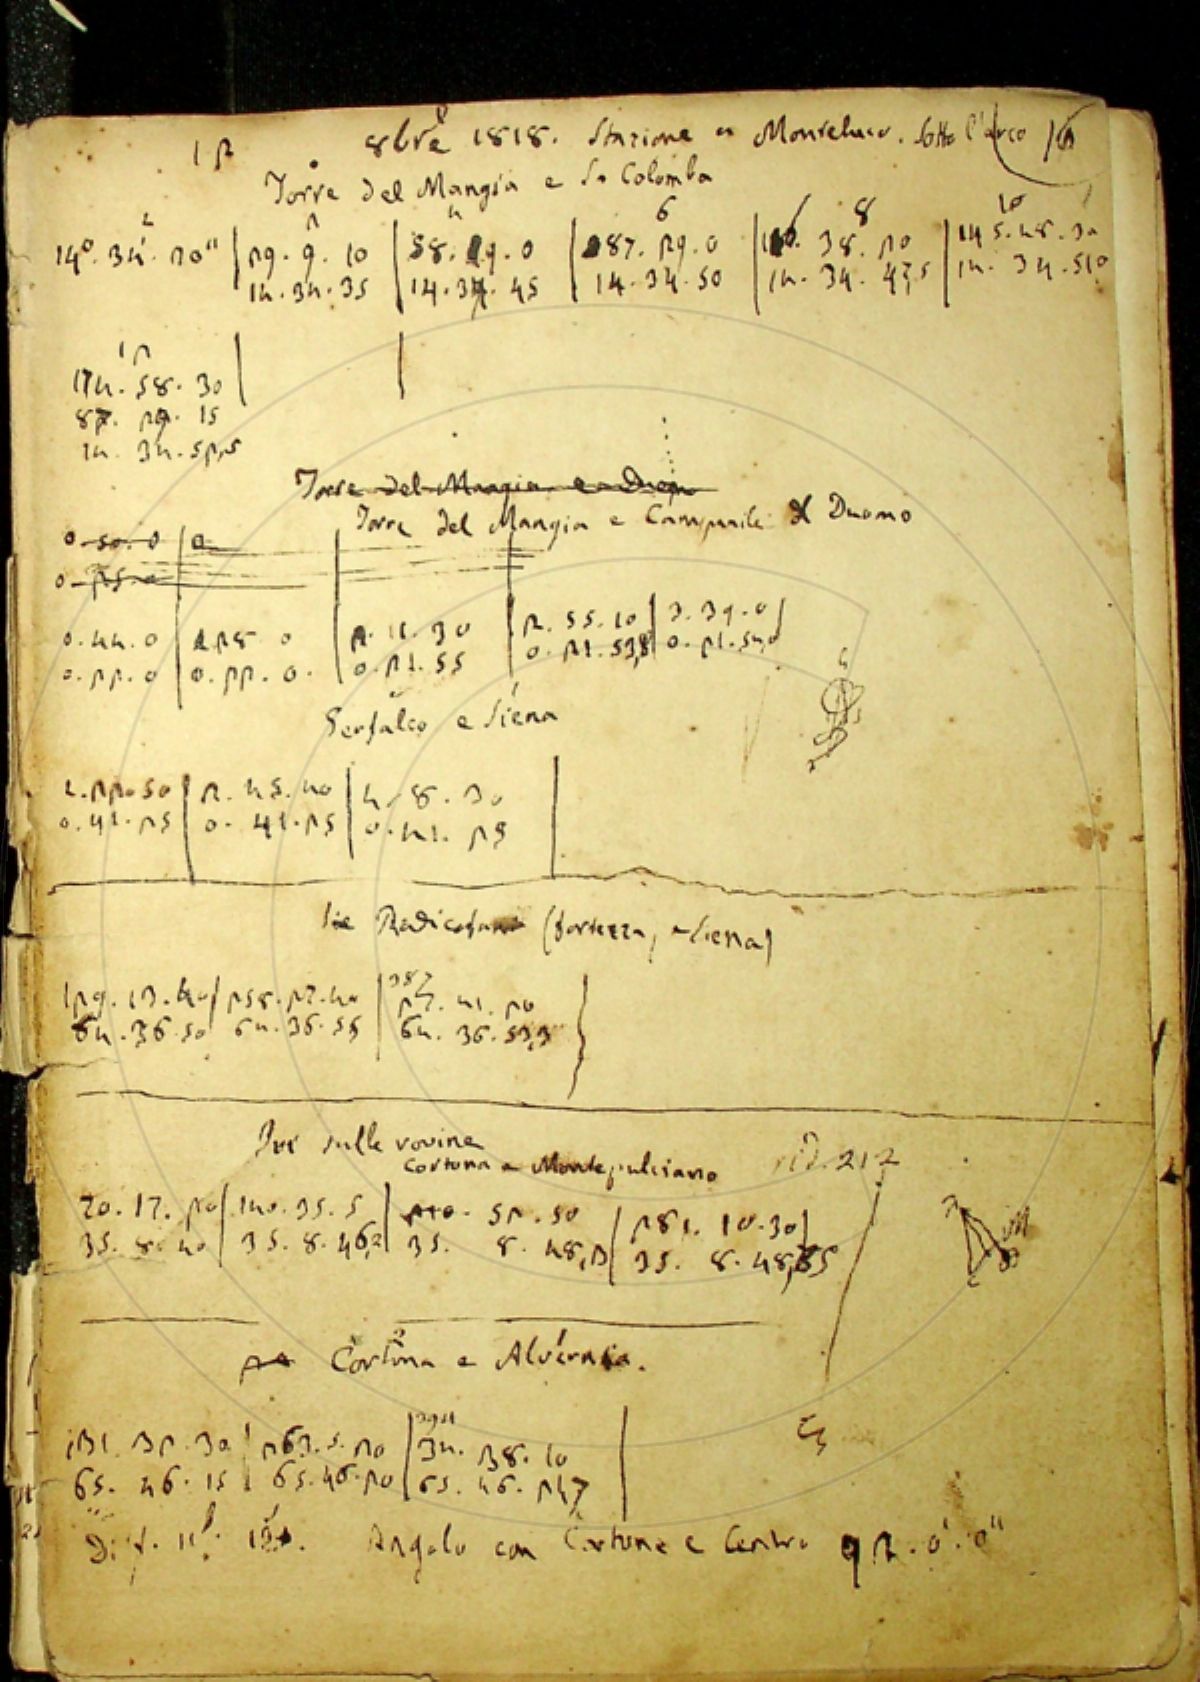 12 8bre 1818. Stazione a Monteluco. Sotto l'arco
Torre del Mangia e Sa Colomba
2 4 6 8 10
14°. 34'. 20" | 29. 9. 10 | 58. 19. 0 | 87. 29. 0 | 38. 20 | 145. 48. 30
14. 34. 35 | 14. 34. 45 | 14. 34. 50 | 14. 34. 47,5 | 14. 34. 51,0
12
174. 58. 30
87. 29. 15
14. 34. 52,5
Torre del Mangia e Duomo
Torre del Mangia e Campanile Duomo
0. 50. 0 | 0
0. 25.
0. 44. 0 | 1.28 0 | 2. 11. 30 | 2. 55. 10 | 3. 39. 0
0. 22. 0 | 0. 22. 0. | 0. 21. 55 | 0. 21. 53,8 | 0. 21. 54,0
Gerfalco e Siena
1. 22. 50 | 2. 45. 40 | 4. 8. 30
0. 41. 25 | 0. 41. 25 | 0. 41. 25
Radicofani (fortezza, e Siena)
387
129. 13. 40 | 258. 27. 40 | 27. 41. 20
64. 36. 50 | 64. 36. 55 | 64. 36. 53,3
Ivi sulle rovine
Cortona e Montepulciano 212
70. 17. 20 | 140. 35. 5 | 210. 52. 50 | 281. 10. 30
35. 8. 40 | 35. 8. 46,2 | 35. 8. 48,3 | 35. 8. 48,75
Cortona e Alvernia.
394
131. 32. 30 | 263. 5. 20 | 34. 38. 10
65. 46. 15 | 65. 46. 20 | 65. 46. 21,7
Angolo con Cortona e Centro 92. 0'. 0"